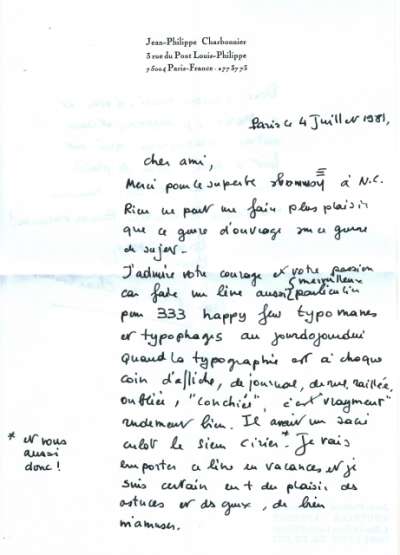 Jean-Philippe Charbonnier
3 rue du Pont Louis-Philippe
75004 Paris-France - 277 37 73
Paris le 4 Juillet 1981,
cher ami,
Merci pour ce superbe à N.C.
Rien ne peut me faire plus plaisir
que ce genre d'ouvrage sur ce genre
de sujet -
J'admire votre courage et votre passion
car faire un livre aussi merveilleux particulier
pour 333 happy few typomanes
et typophages au jourdojourdui
quand la typographie est à chaque
coin d'affiche, de journal, de rue, raillée,
oubliée, "conchiée", c'est "vrayment"
rudement bien. Il avait un sacré
culot le sieur *. Je vais
emporter ce livre en vacances et je
suis certain en + du plaisir des
astuces et des , de bien
m'amuser.
* et vous
aussi
donc !